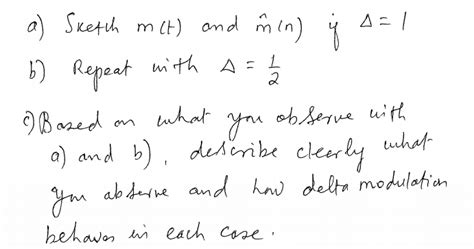 a) Sketch m(t) and m̂(n) if Δ = 1
b) Repeat with Δ = 1/2
c) Based on what you observe with
a) and b), describe clearly what
you observe and how delta modulation
behaves in each case.